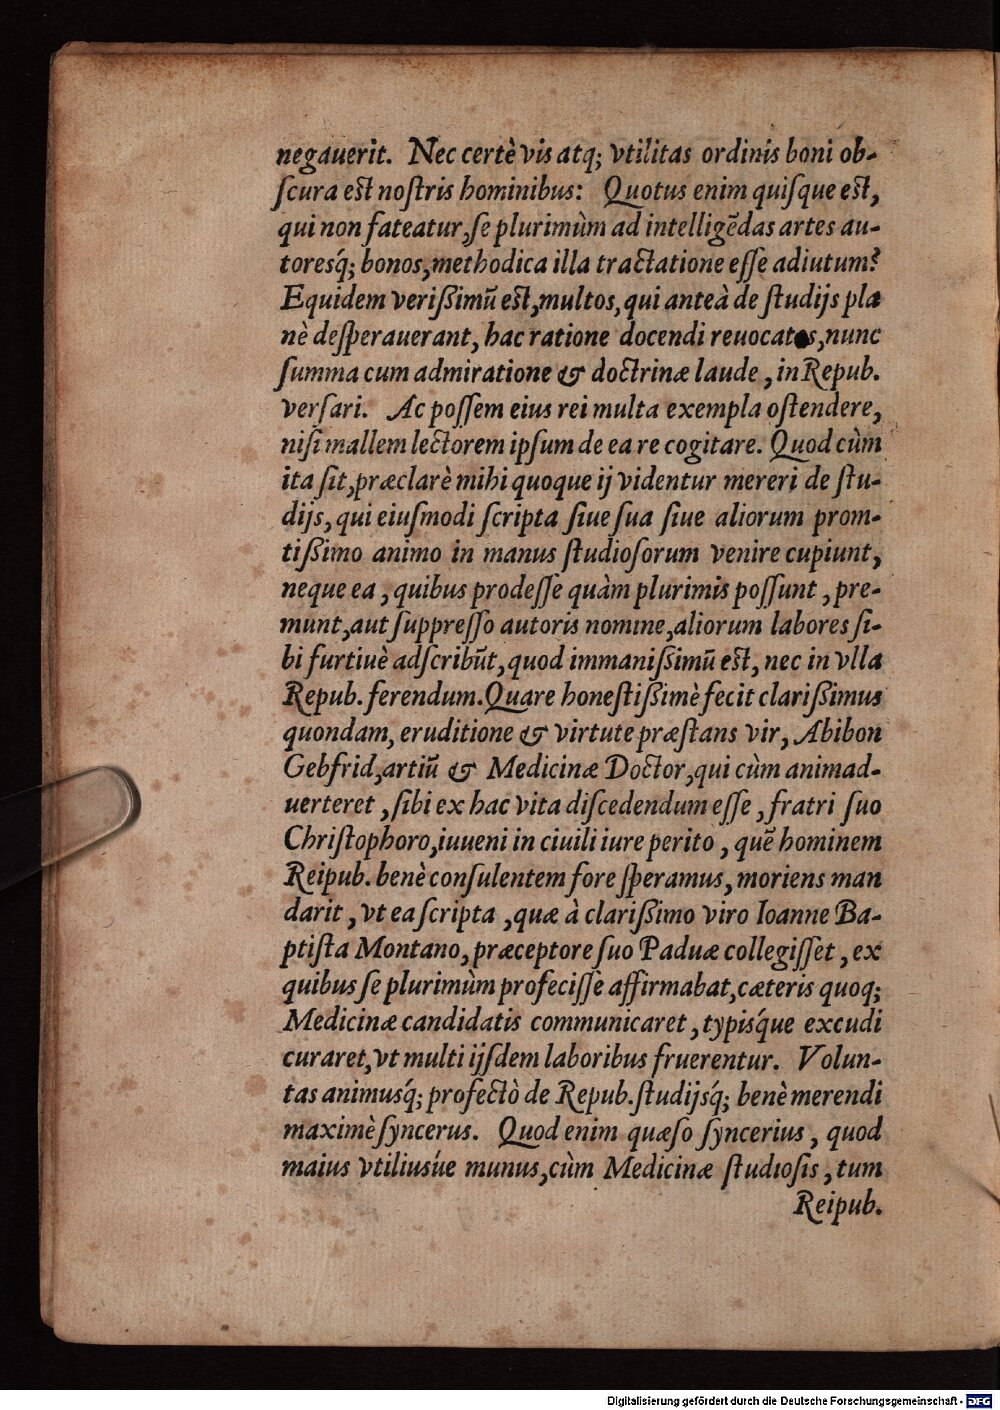 negauerit. Nec certè vis atq; vtilitas ordinis boni ob-
ſcura eſt noſtris hominibus: Quotus enim quiſque eſt,
qui non fateatur, ſe plurimùm ad intelligẽdas artes au-
toresq́; bonos, methodica illa tractatione eſſe adiutum?
Equidem verißimũ eſt, multos, qui anteà de ſtudijs pla
nè deſperauerant, hac ratione docendi reuocatos, nunc
ſumma cum admiratione & doctrinæ laude, in Repub.
verſari. Ac poſſem eius rei multa exempla oſtendere,
niſi mallem lectorem ipſum de ea re cogitare. Quod cùm
ita ſit, præclarè mihi quoque ij videntur mereri de ſtu-
dijs, qui eiuſmodi ſcripta ſiue ſua ſiue aliorum prom-
tißimo animo in manus ſtudioſorum venire cupiunt,
neque ea, quibus prodeſſe quàm plurimis poſſunt, pre-
munt, aut ſuppreſſo autoris nomine, aliorum labores ſi-
bi furtiuè adſcribũt, quod immanißimũ eſt, nec in vlla
Repub. ferendum. Quare honeſtißimè fecit clarißimus
quondam, eruditione & virtute præſtans vir, Abibon
Gebfrid, artiũ & Medicinæ Doctor, qui cùm animad-
uerteret, ſibi ex hac vita diſcedendum eſſe, fratri ſuo
Chriſtophoro, iuueni in ciuili iure perito, quẽ hominem
Reipub. benè conſulentem fore ſperamus, moriens man
darit, vt ea ſcripta, quæ à clarißimo viro Ioanne Ba-
ptiſta Montano, præceptore ſuo Paduæ collegiſſet, ex
quibus ſe plurimùm profeciſſe affirmabat, cæteris quoq;
Medicinæ candidatis communicaret, typisq́ue excudi
curaret, vt multi ijſdem laboribus fruerentur. Volun-
tas animusq́; profectò de Repub. ſtudijsq́; benè merendi
maximè ſyncerus. Quod enim quæſo ſyncerius, quod
maius vtiliusúe munus, cùm Medicinæ ſtudioſis, tum
Reipub.
Digitalisierung gefördert durch die Deutsche Forschungsgemeinschaft - DFG